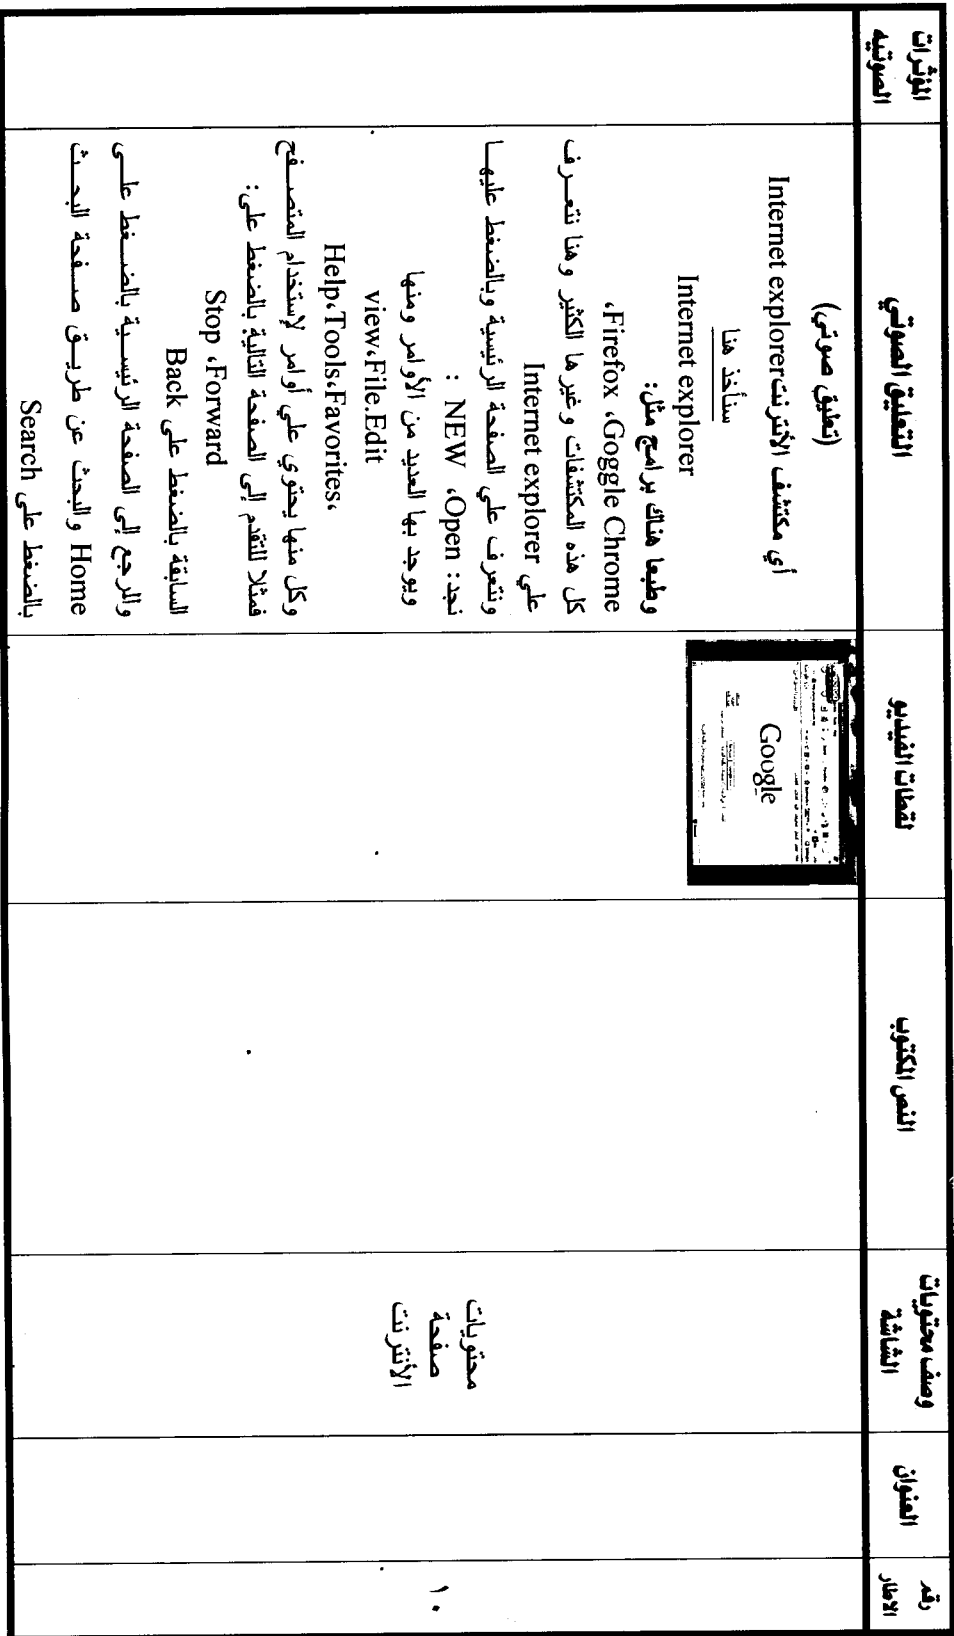 رقم
الاطار
العنوان
وصف محتويات
الشاشة
النص المكتوب
لقطات الفيديو
التعليق الصوتي
المؤثرات
الصوتيه
١٠
محتويات
صفحة
الأنترنت
Google
(تعليق صوتي)
أي مكتشف الأنترنت Internet explorer
سنأخذ هنا
Internet explorer
وطبعا هناك برامج مثل:
Firefox ،Goggle Chrome،
كل هذه المكتشفات وغيرها الكثير وهنا نتعرف
علي Internet explorer
ونتعرف علي الصفحة الرئيسية وبالضغط عليها
نجد: NEW ،Open :
ويوجد بها العديد من الأوامر ومنها
view،File.Edit
Help،Tools،Favorites،
وكل منها يحتوي علي أوامر لإستخدام المتصفح
فمثلا للتقدم إلى الصفحة التالية بالضغط على:
Stop ،Forward
السابقة بالضغط على Back
والرجع إلى الصفحة الرئيسية بالضغط على
Home والبحث عن طريق صفحة البحث
بالضغط على Search